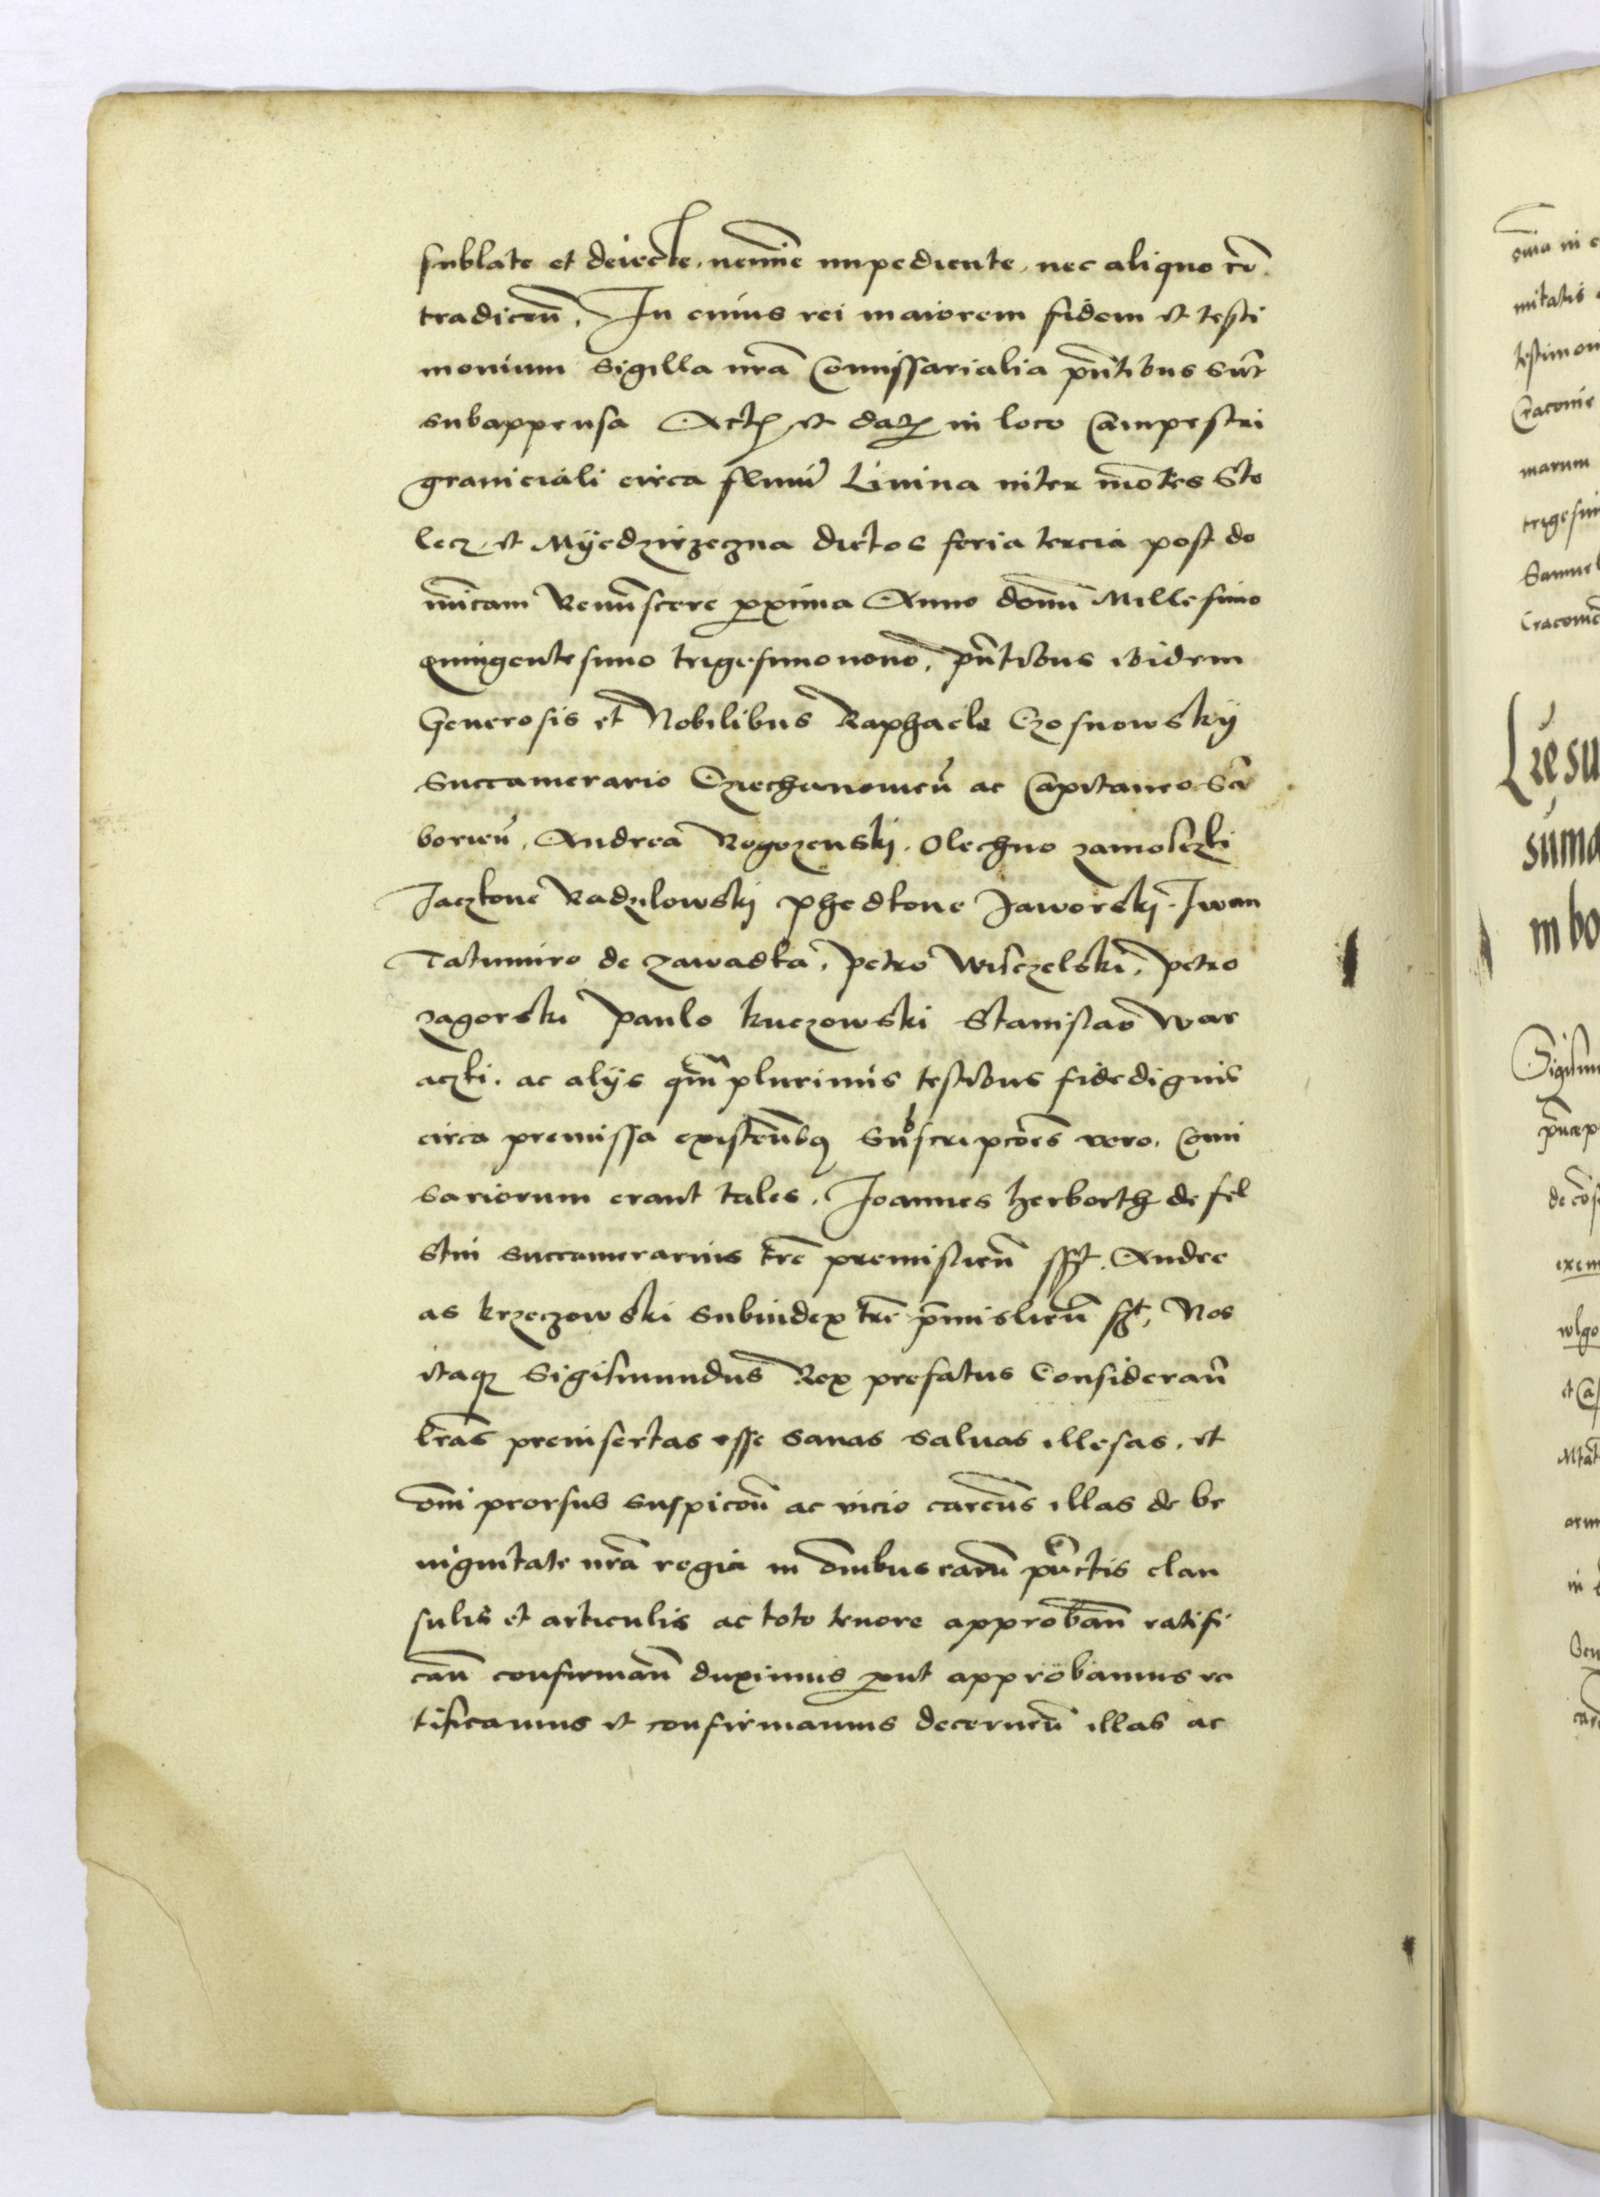 sublate et deiecte, nemine impediente, nec aliquo cō
tradiceñ. In cuius rei maiorem fidem et testi
monium sigilla nrã Comissarialia pñtibus sũt
subappensa Actũ et datũ in loco Campestri
graniciali circa fluuiũ Linina inter mõtes Sto
lecz et Myedzirzeczna dictos feria tercia post do
mĩcam Remĩscere pxima Anno domĩ Millesimo
quingentesimo trigesimonono, pñtibus ibidem
Generosis et Nobilibus Raphaele Czosnowskÿ
Succamerario Cziechanouieñ ac Capitaneo Sã
borieñ, Andrea Rogozenskj. Olechno zamosczki
Jaczkone Radzilowskj phedkone Jaworskj. Iwan
Tatumiro de Zawadka, Petro Wisczelski, Petro
zagorski Paulo kuczowski Stanislao War
aczki. ac alÿs qm̃plurimis testibus fidedignis
circa premissa existeñbq sub̃scripcões vero, Comi
sariorum erant tales. Joannes herborth de fel
stin succamerarius trẽ premislieñ sst. Andre
as krzeczowski subiudex trẽ p̃mislieñ sst, Nos
itaq Sigismundus Rex prefatus Considerañ
lrãs preinsertas esse sanas saluas illesas, et
om̃i prorsus suspicoñ ac vicio careñs illas de be
nignitate nrã regia in om̃ibus earũ pũctis clau
sulis et articulis ac toto tenore approbañ ratifi
cañ confirmañ duximus put approbamus ra
tificamus et confirmamus decerneñ illas ac